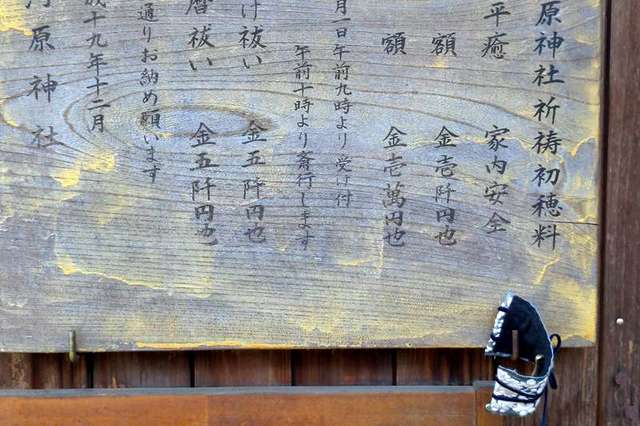 原神社祈祷初穂料
平癒 家内安全
額 金壱阡円也
額 金壱萬円也
月一日午前九時より受け付
午前十時より斎行します
け祓い 金五阡円也
暦祓い 金五阡円也
通りお納め願います
成十九年十二月
河原神社